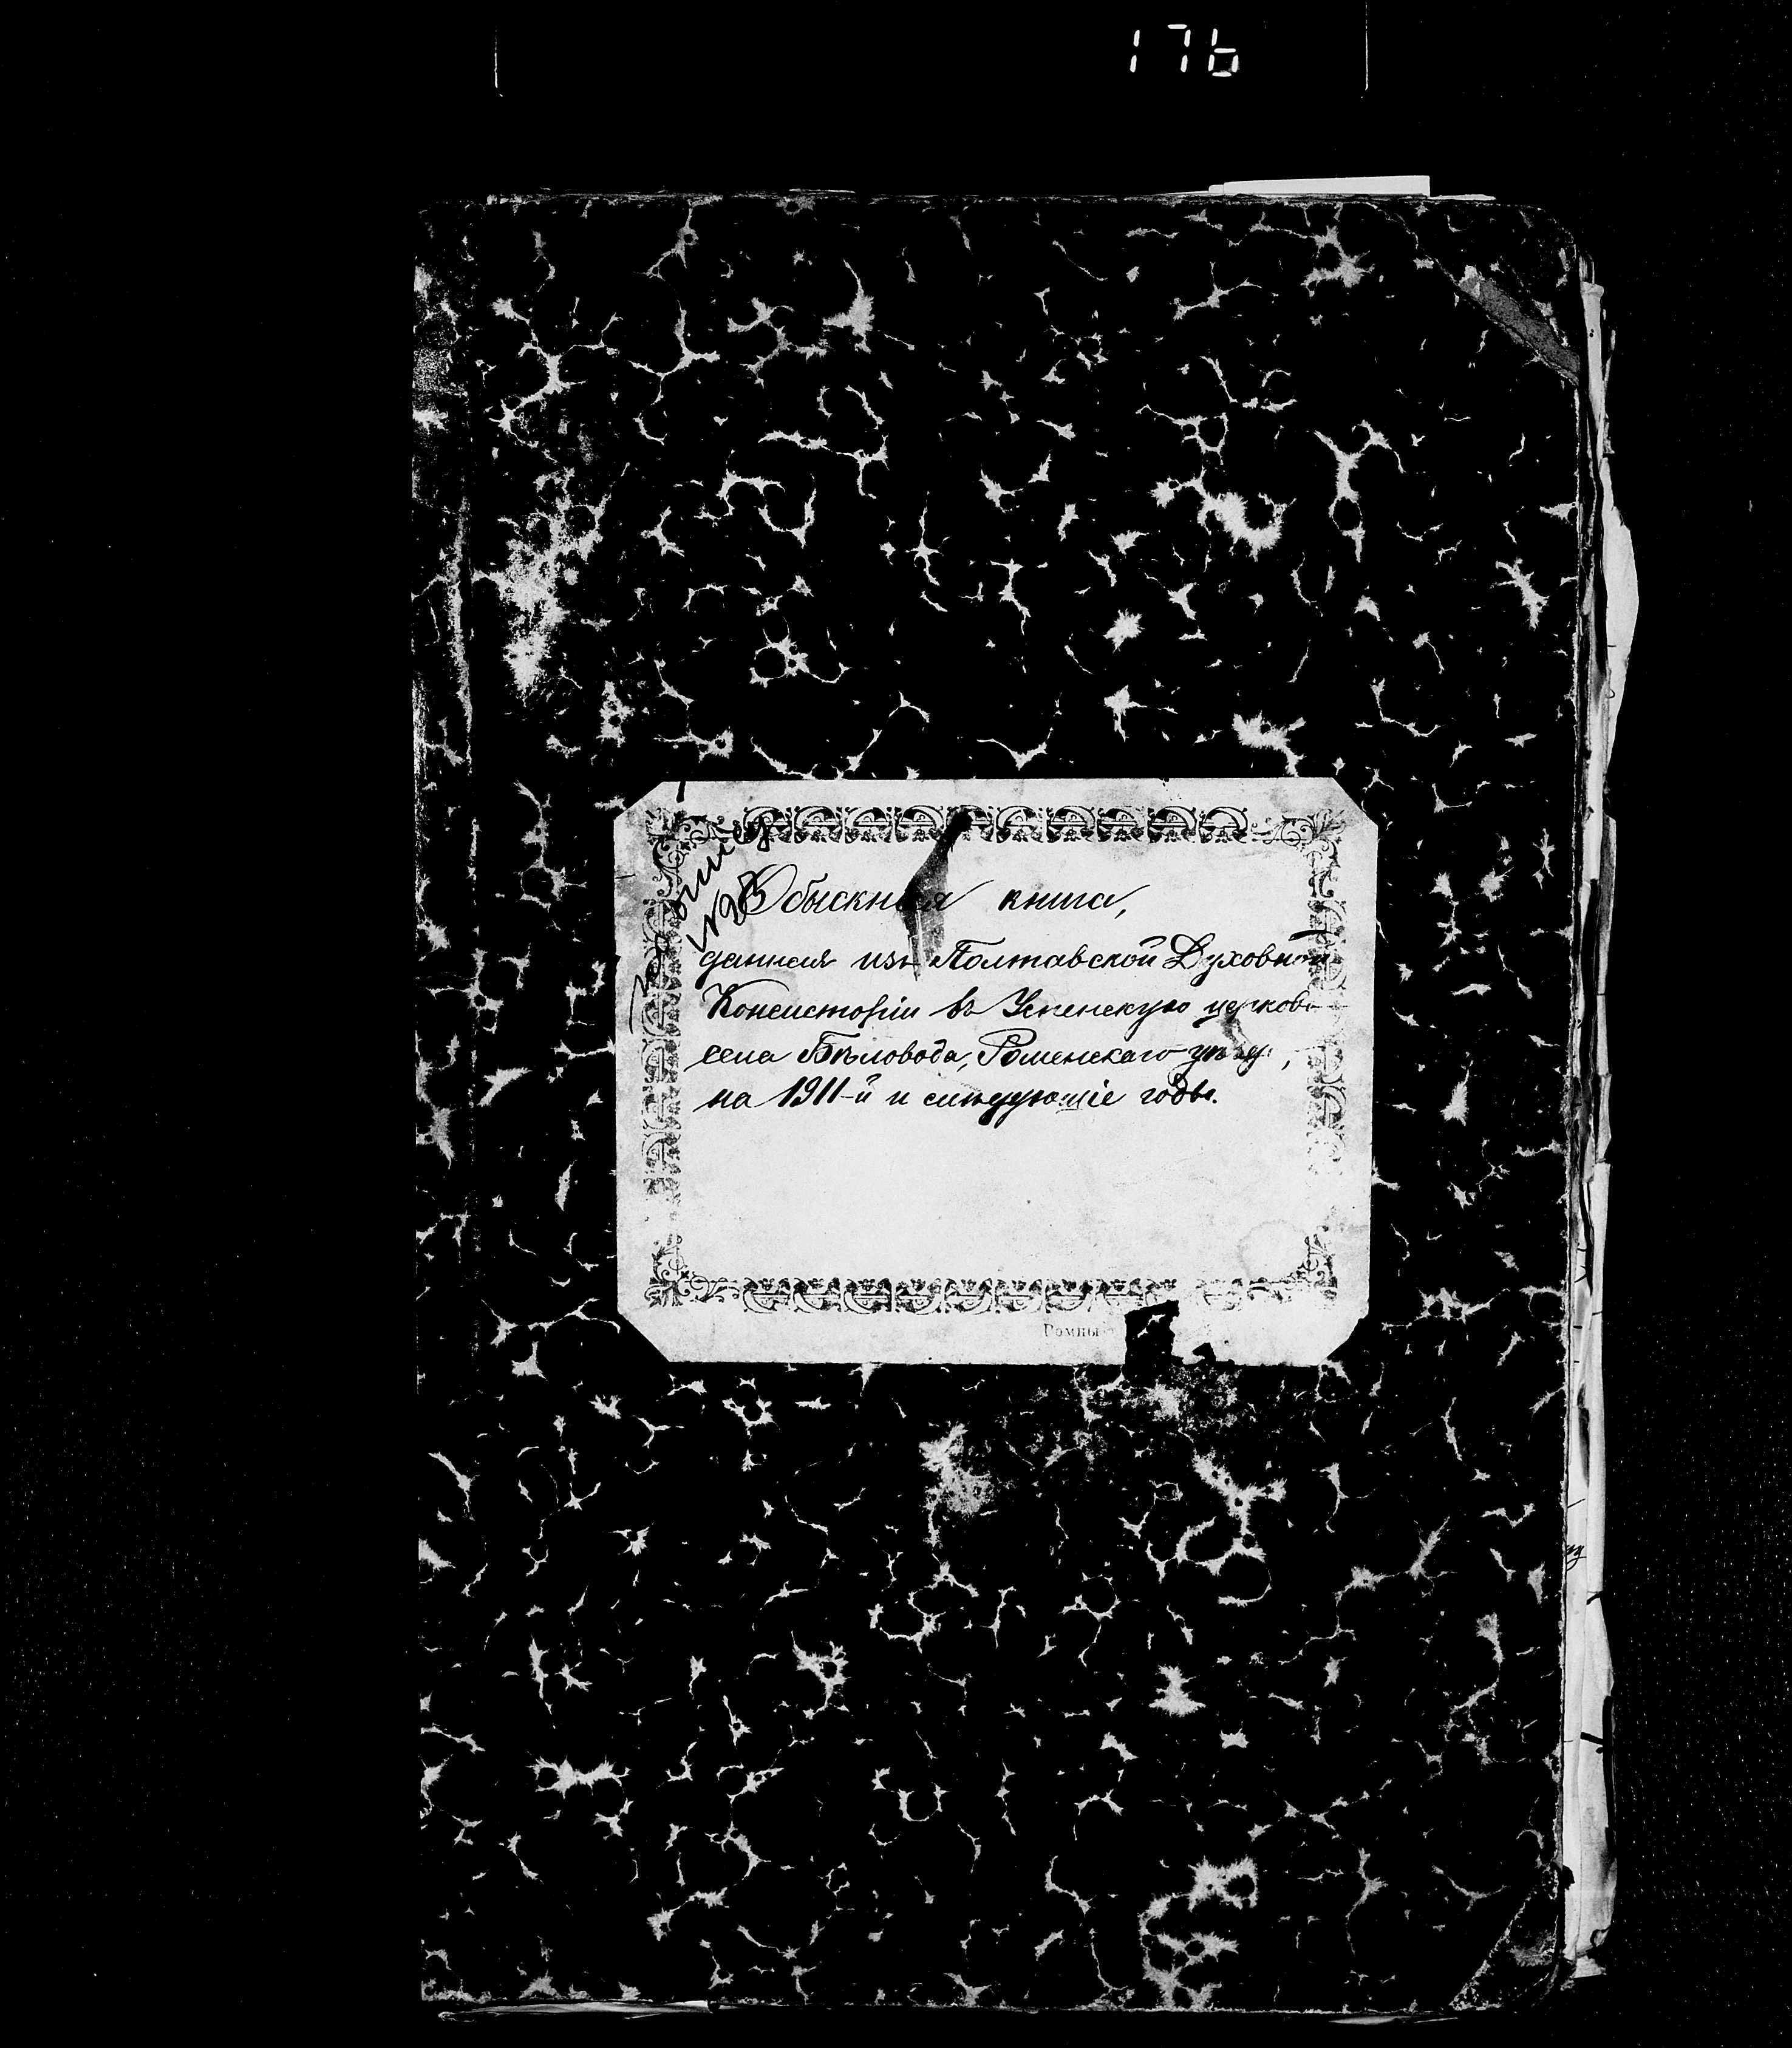 176
Обыскная книга,
данная изъ Полтавской Духовной
Консисторіи въ Успенскую церковь
села Бѣловода, Роменскаго уѣзд,
на 1911-й и слѣдующіе годы.
Ромны